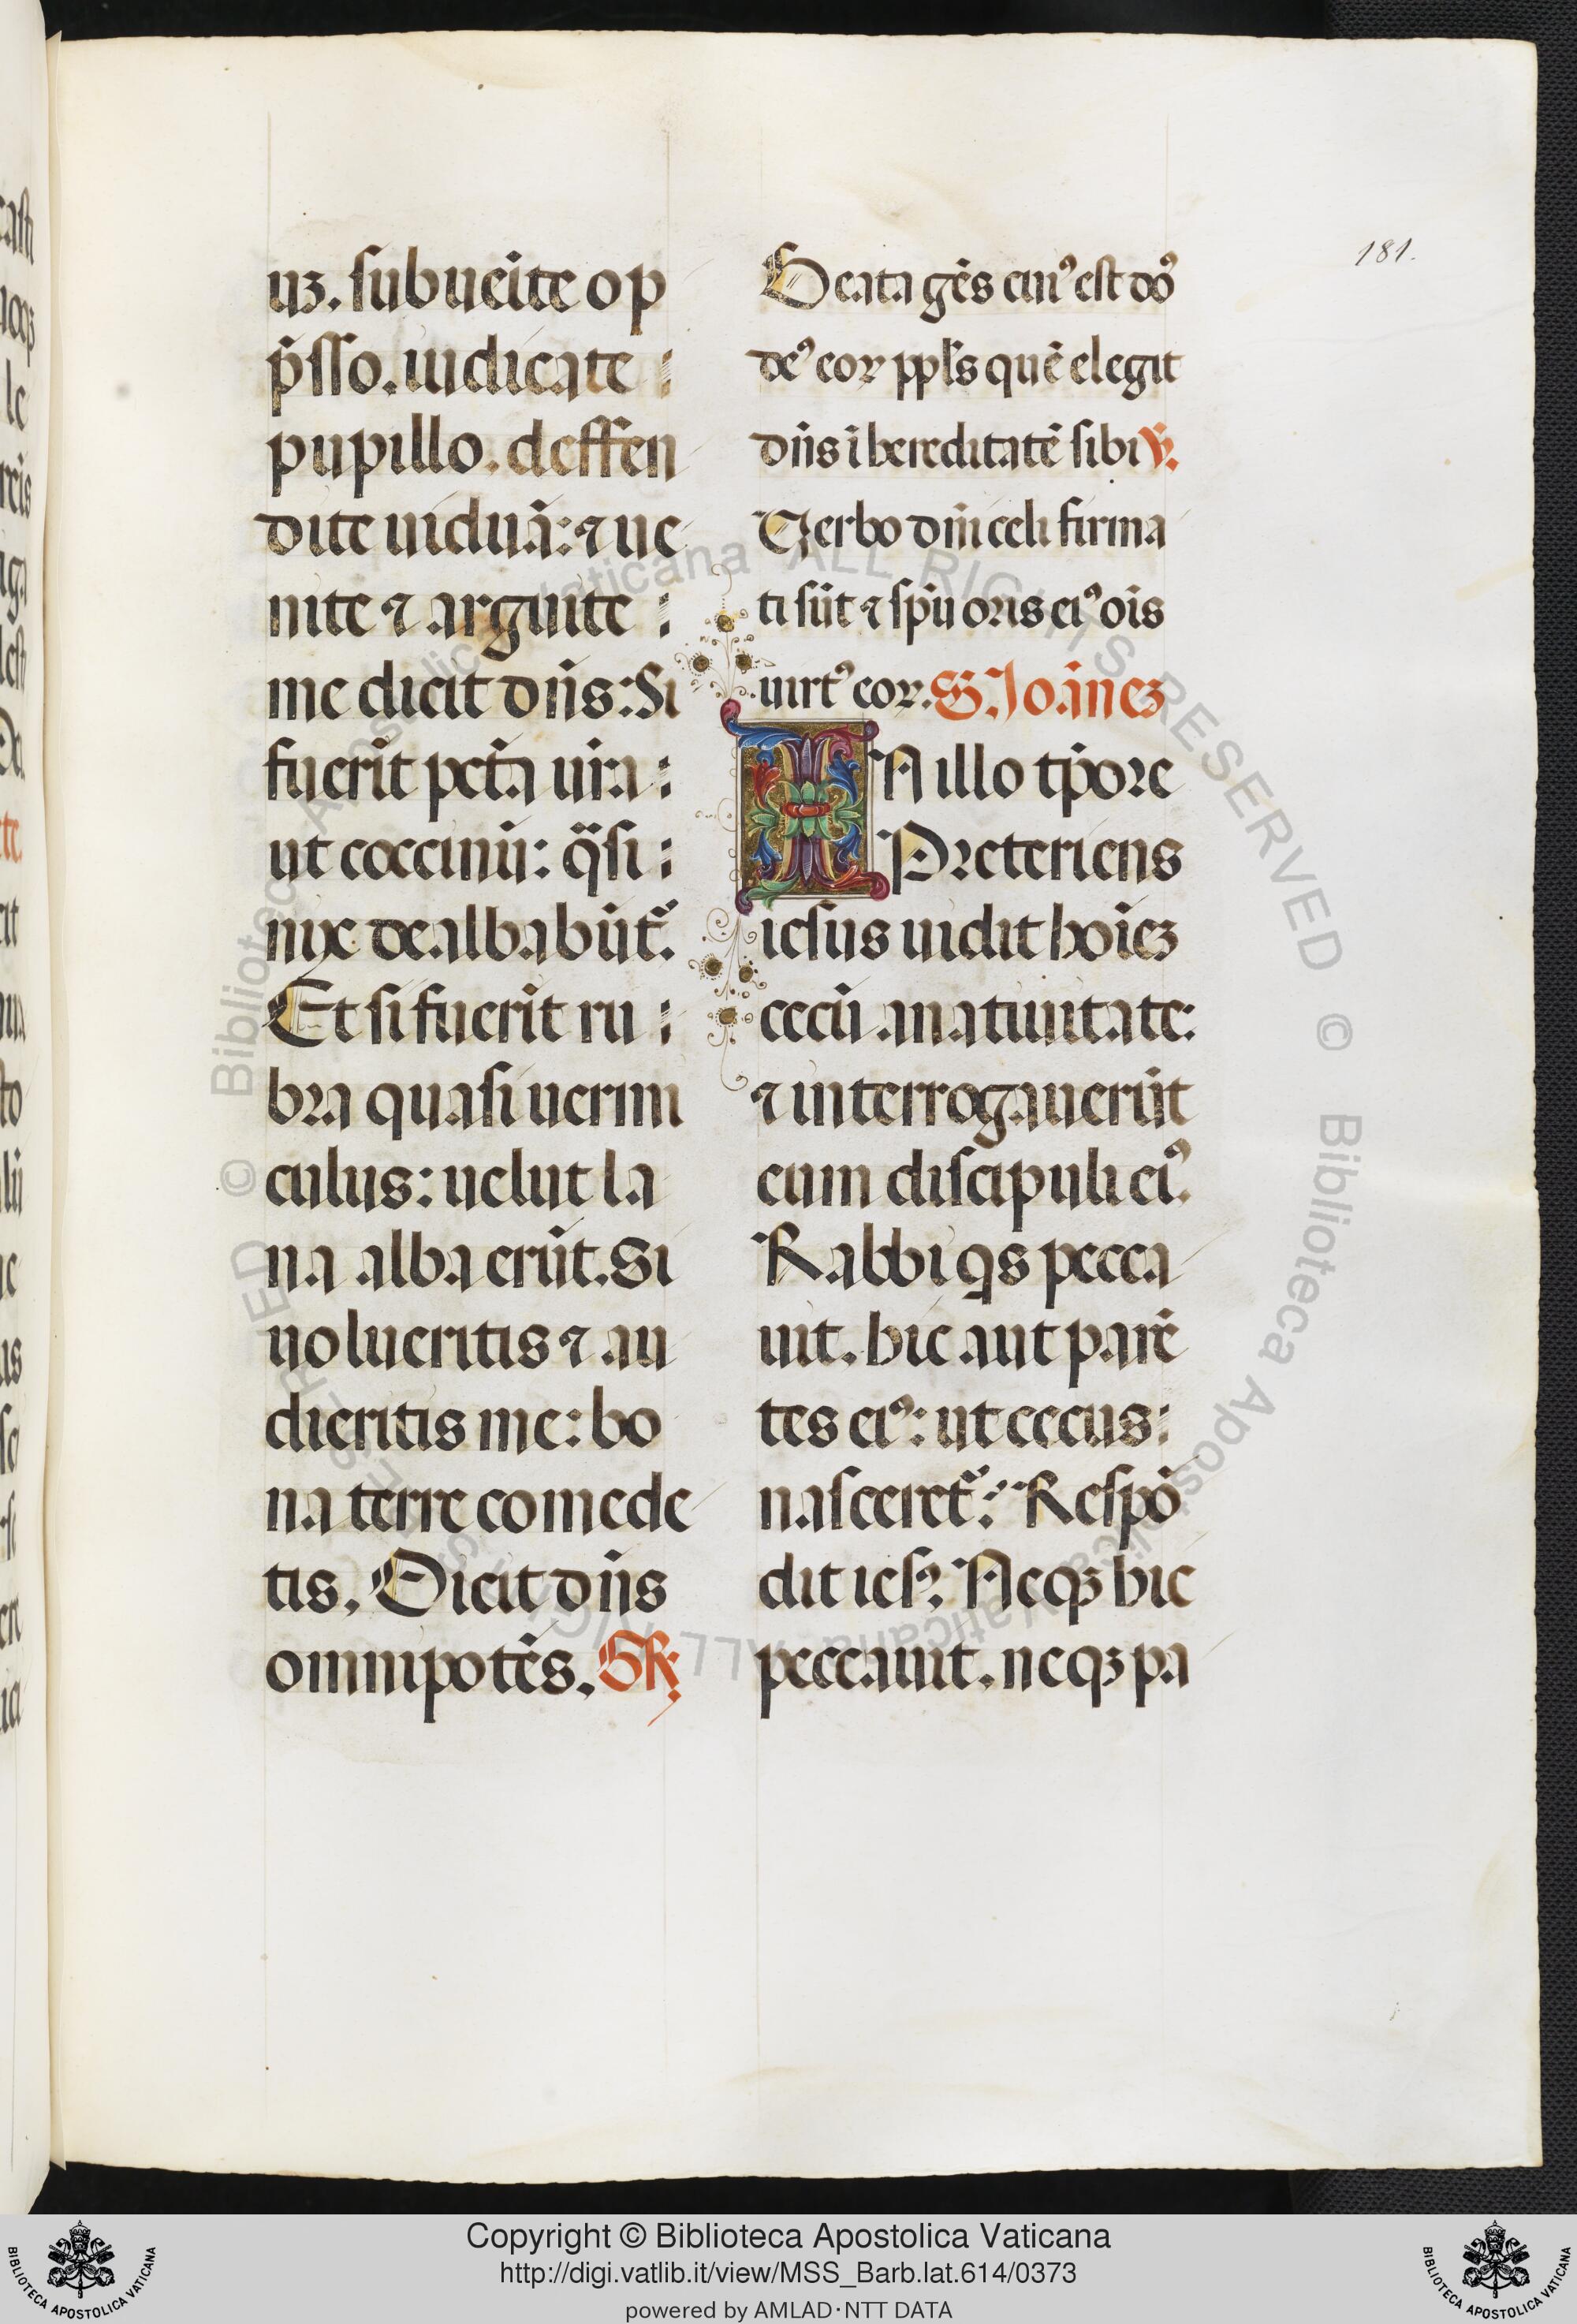 181.
uꝫ. subueite op
p̃sso. iudicate :
pupillo. deffen
dite uiduã: ⁊ ue
nite ⁊ arguite :
me dicit dñs: Si
fuerĩt pctã ura :
ut coccinũ: q̃si :
nix dealbabũt᷑.
Et si fuerĩt ru :
bra quasi uermi
culus: uelut la
na alba erũt. Si
uolueritis ⁊ au
dieritis me: bo
na terre comede
tis. Dicit dñs
omnipotẽs. GR
Beata gẽs cuiꝰ est dñs
deꝰ eoꝝ ppl̃s quẽ elegit
dñs ĩ hereditatẽ sibi ℣.
Uerbo dñi celi firma
ti sũt ⁊ spũ oris eiꝰ oĩs
uirtꝰ eoꝝ. S. Joãneꝫ
IN illo tp̃ore
Preteriens
iesus uidit hoĩeꝫ
cecũ a natiuitate:
⁊ interrogauerũt
eum discipuli eiꝰ.
Rabbi qs pecca
uit. hic aut parẽ
tes eiꝰ: ut cecus :
nasceret᷑: Respõ
dit iesꝰ. Necqꝫ hic
peccauit. neqꝫ pa
Copyright © Biblioteca Apostolica Vaticana
http://digi.vatlib.it/view/MSS_Barb.lat.614/0373
powered by AMLAD·NTT DATA
BIBLIOTECA APOSTOLICA VATICANA
BIBLIOTECA APOSTOLICA VATICANA